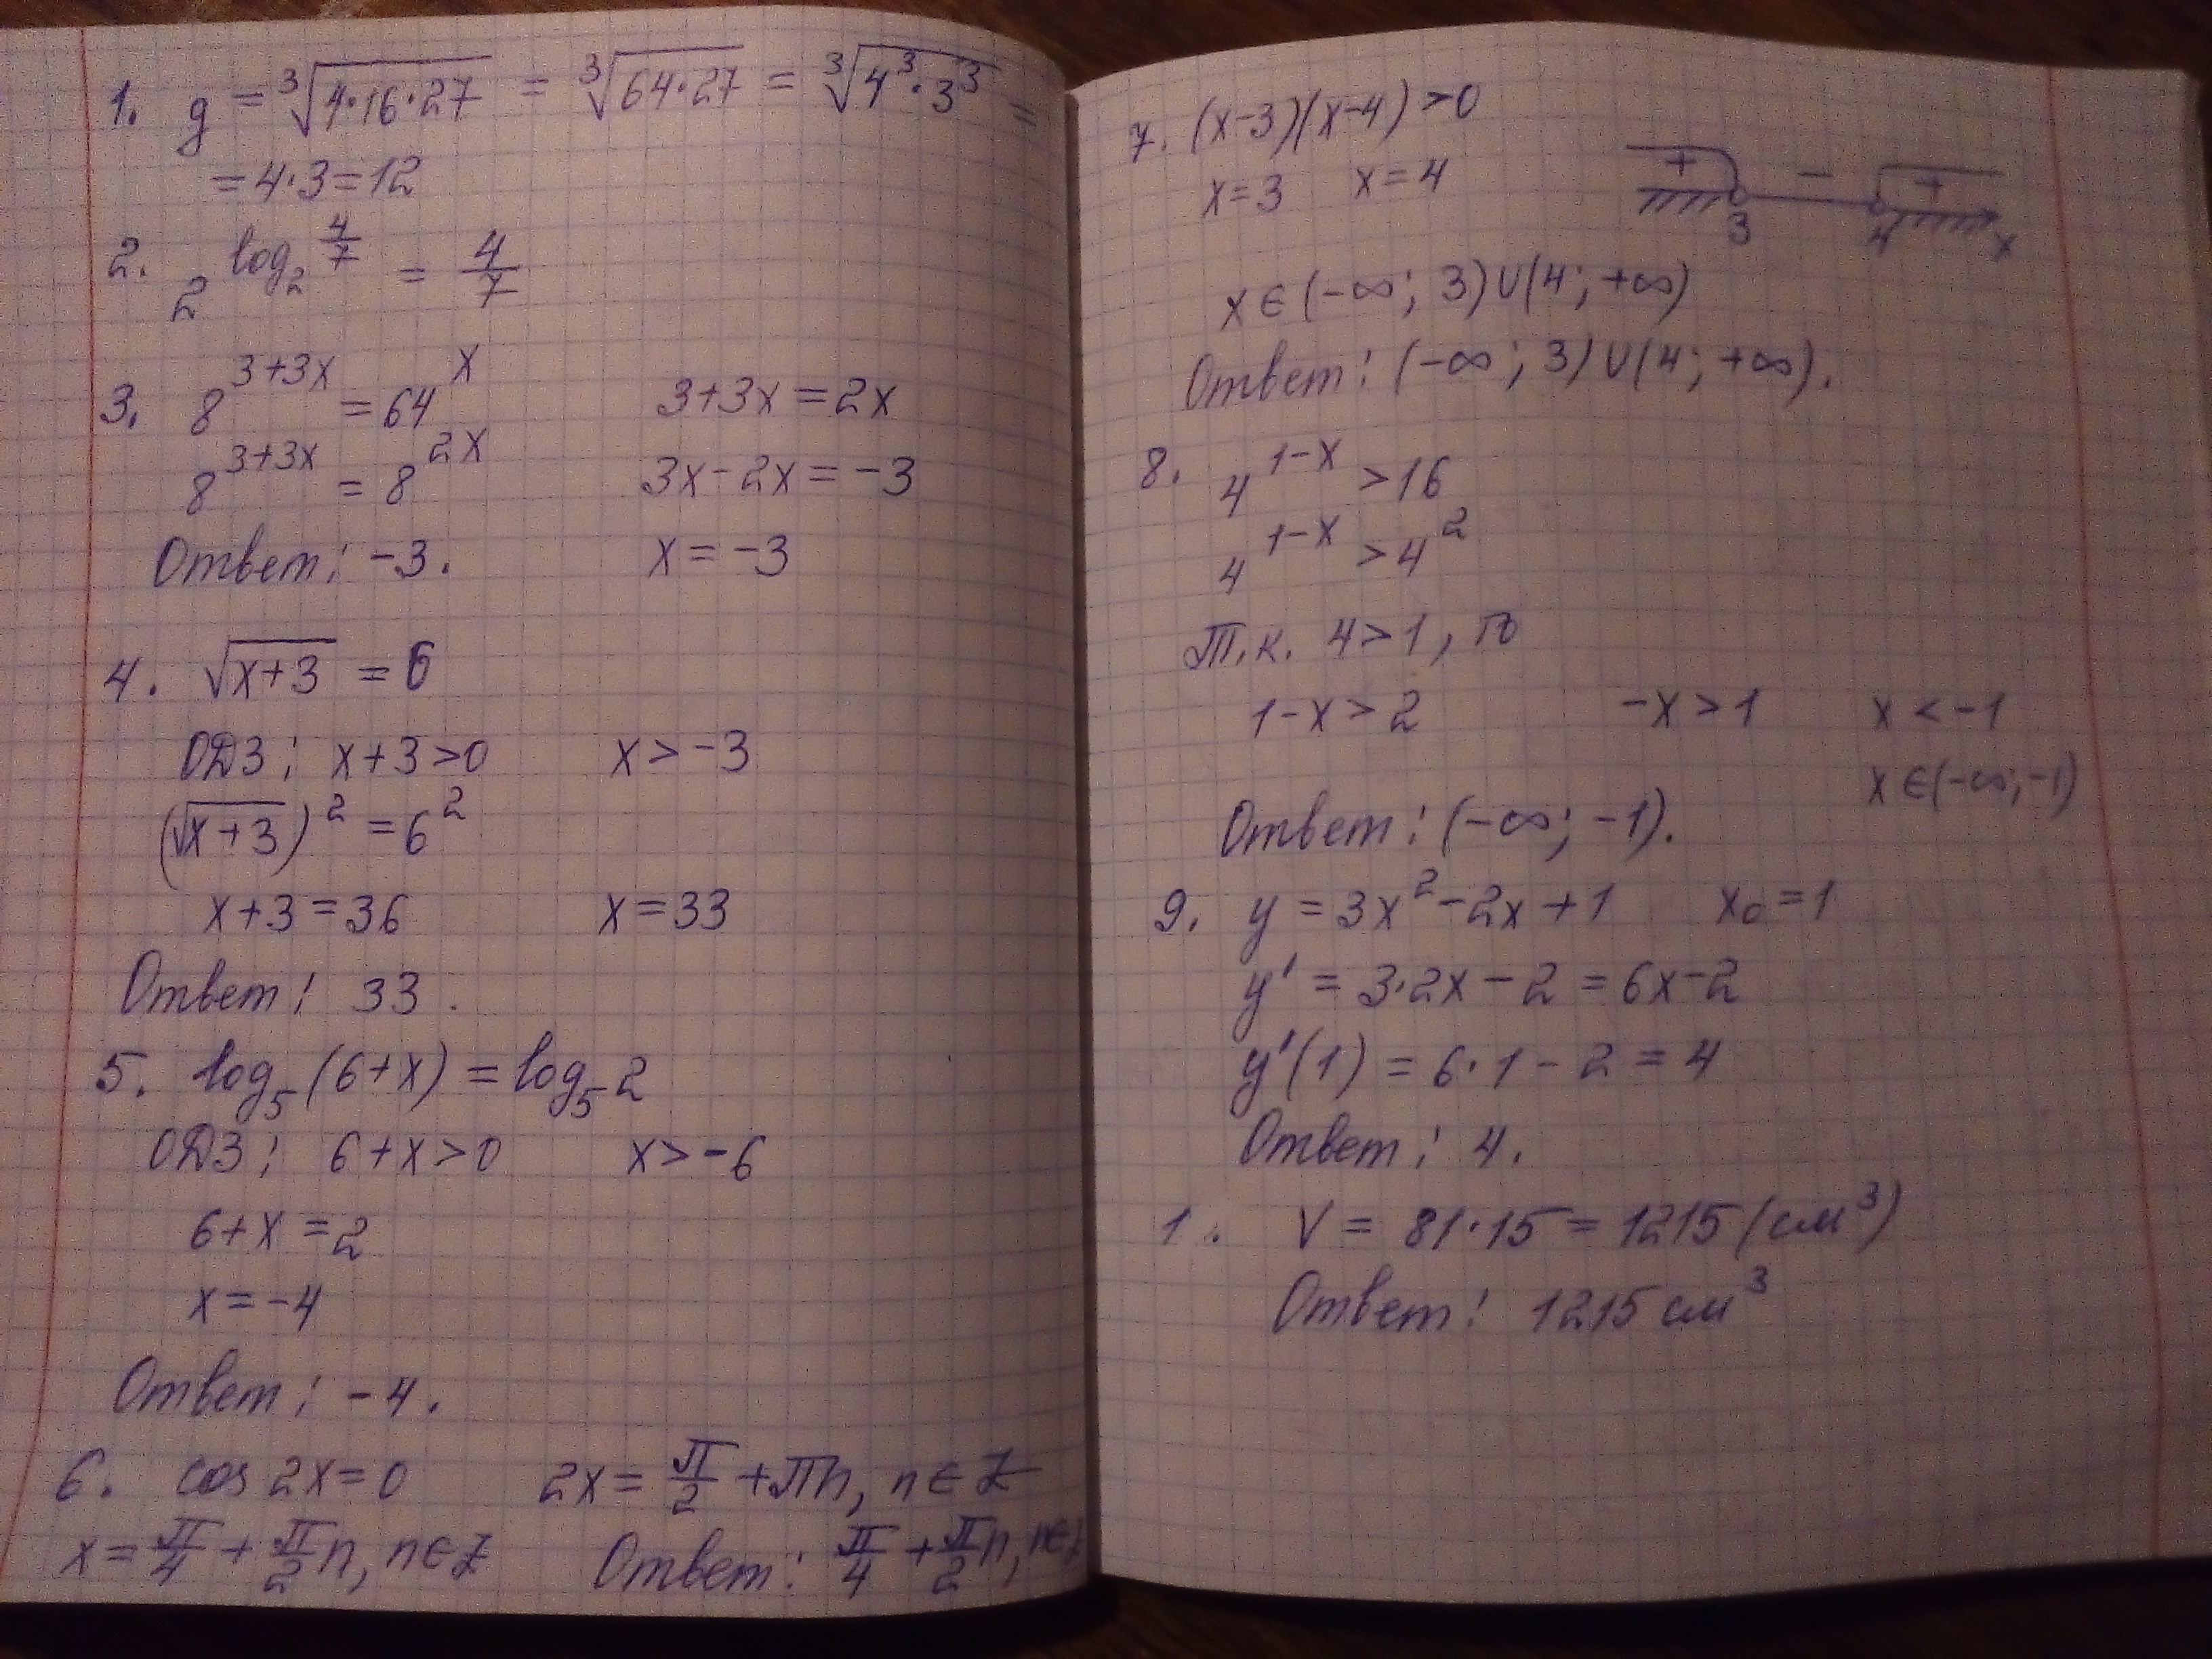 1. g = ∛(4·16·27) = ∛(64·27) = ∛(4³·3³) =
= 4·3 = 12
2. 2^(log₂ 4/7) = 4/7
3. 8^(3+3x) = 64^x 3+3x = 2x
8^(3+3x) = 8^(2x) 3x-2x = -3
Ответ: -3. x = -3
4. √(x+3) = 6
ОДЗ: x+3>0 x>-3
(√(x+3))² = 6²
x+3 = 36 x = 33
Ответ: 33.
5. log₅(6+x) = log₅2
ОДЗ: 6+x>0 x>-6
6+x = 2
x = -4
Ответ: -4.
6. cos 2x = 0 2x = π/2 + πn, n∈Z
x = π/4 + π/2 n, n∈Z Ответ: π/4 + π/2 n, n∈Z
7. (x-3)(x-4)>0
x = 3 x = 4
+ - +
3 4 x
x∈(-∞; 3)∪(4; +∞)
Ответ: (-∞; 3)∪(4; +∞).
8. 4^(1-x) > 16
4^(1-x) > 4²
Т.к. 4>1, то
1-x>2 -x>1 x<-1
x∈(-∞;-1)
Ответ: (-∞; -1).
9. y = 3x²-2x+1 x₀=1
y' = 3·2x-2 = 6x-2
y'(1) = 6·1-2 = 4
Ответ: 4.
1. V = 81·15 = 1215 (см³)
Ответ: 1215 см³